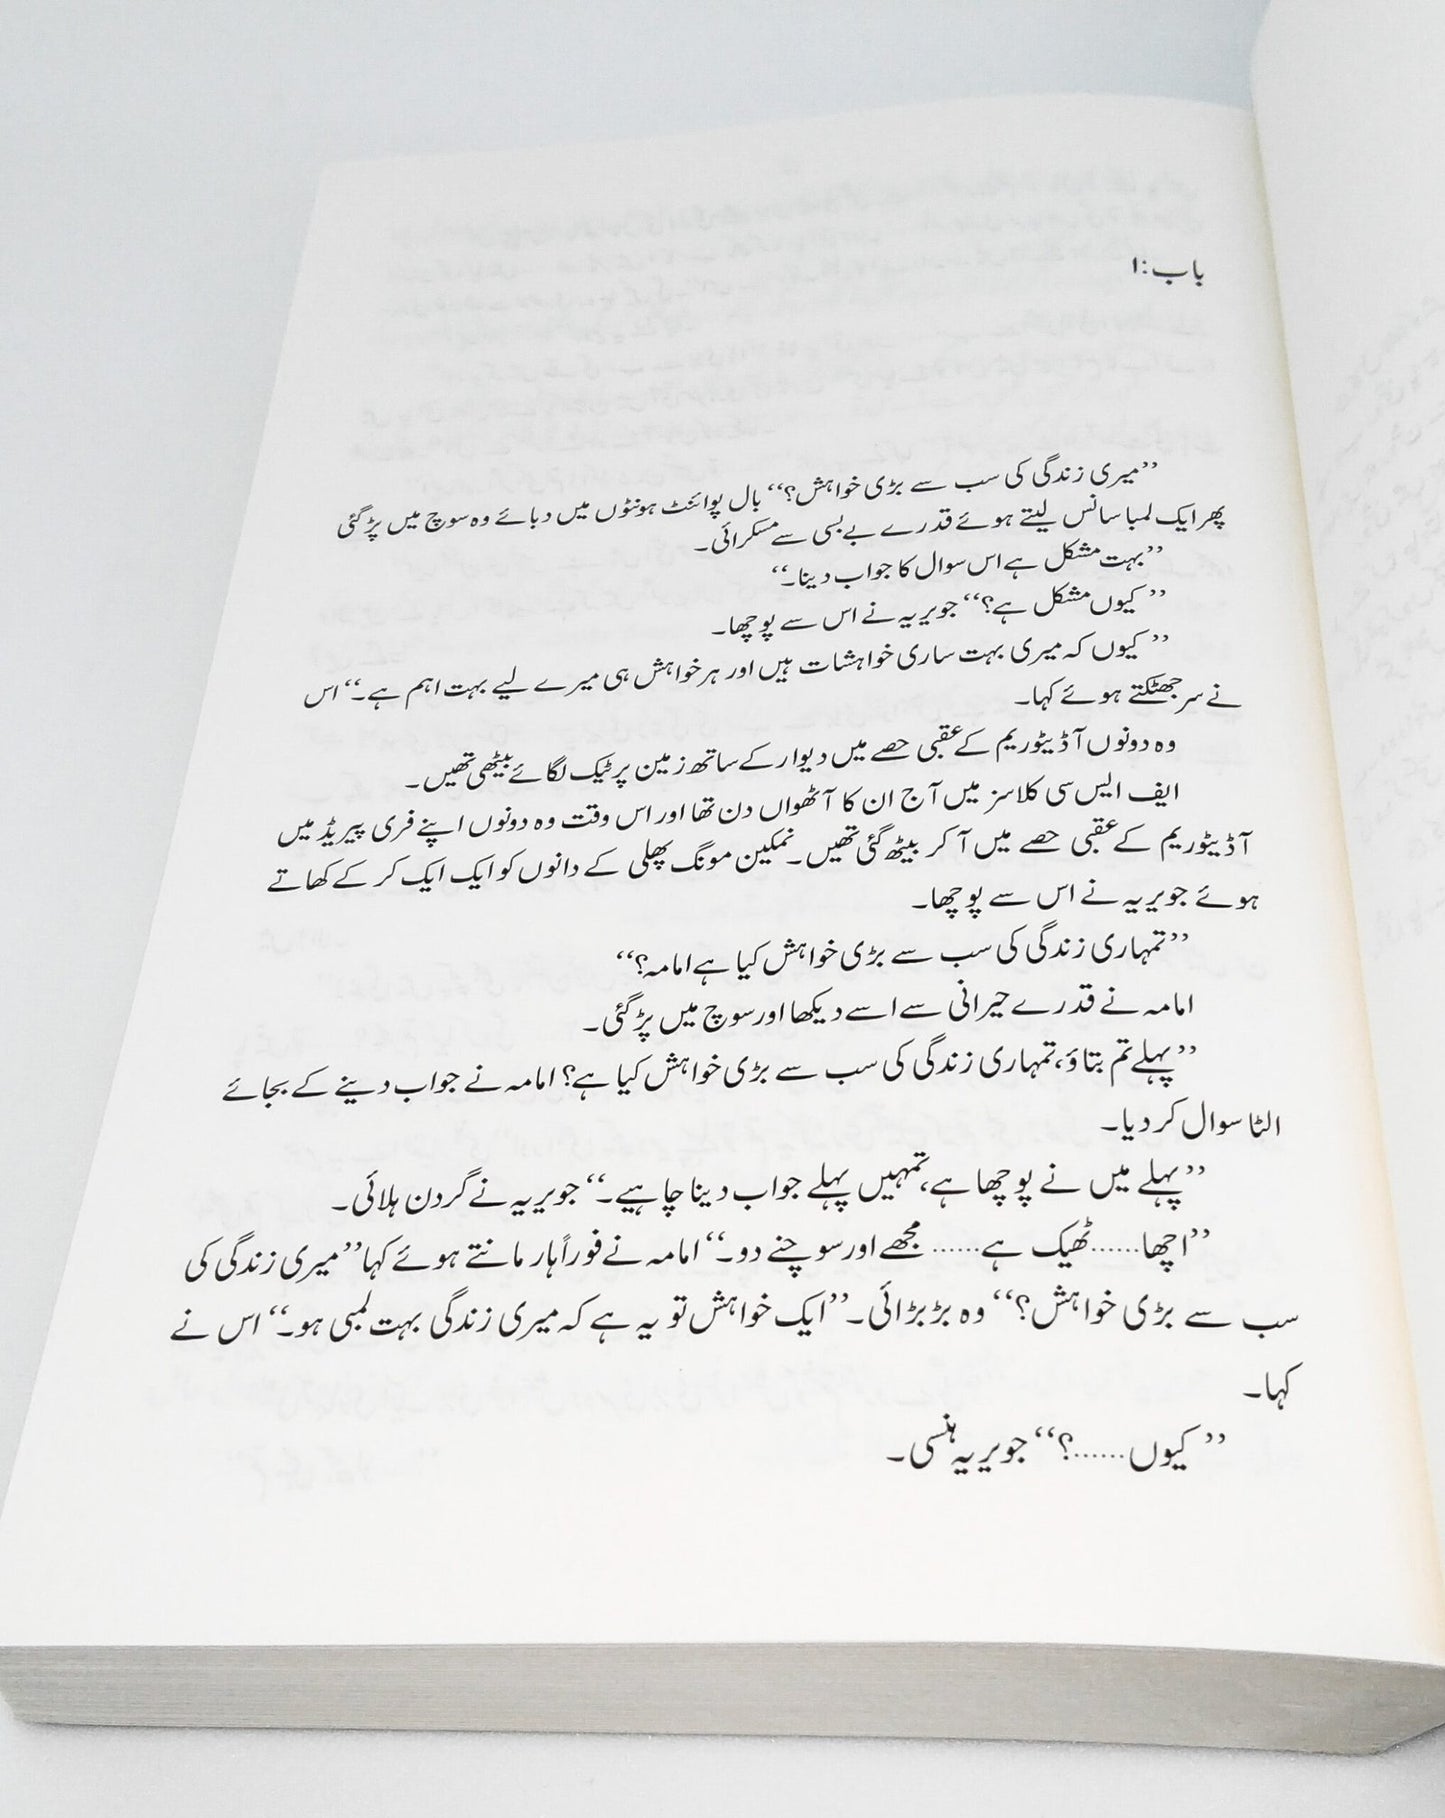 باب:۱
’’میری زندگی کی سب سے بڑی خواہش؟‘‘ بال پوائنٹ ہونٹوں میں دبائے وہ سوچ میں پڑ گئی
پھر ایک لمبا سانس لیتے ہوئے قدرے بے بسی سے مسکرائی۔
’’بہت مشکل ہے اس سوال کا جواب دینا۔‘‘
’’کیوں مشکل ہے؟‘‘ جویریہ نے اس سے پوچھا۔
’’کیوں کہ میری بہت ساری خواہشات ہیں اور ہر خواہش ہی میرے لیے بہت اہم ہے۔‘‘ اس
نے سر جھٹکتے ہوئے کہا۔
وہ دونوں آڈیٹوریم کے عقبی حصے میں دیوار کے ساتھ زمین پر ٹیک لگائے بیٹھی تھیں۔
ایف ایس سی کلاسز میں آج ان کا آٹھواں دن تھا اور اس وقت وہ دونوں اپنے فری پیریڈ میں
آڈیٹوریم کے عقبی حصے میں آ کر بیٹھ گئی تھیں۔ نمکین مونگ پھلی کے دانوں کو ایک ایک کر کے کھاتے
ہوئے جویریہ نے اس سے پوچھا۔
’’تمہاری زندگی کی سب سے بڑی خواہش کیا ہے امامہ؟‘‘
امامہ نے قدرے حیرانی سے اسے دیکھا اور سوچ میں پڑ گئی۔
’’پہلے تم بتاؤ، تمہاری زندگی کی سب سے بڑی خواہش کیا ہے؟ امامہ نے جواب دینے کے بجائے
الٹا سوال کر دیا۔
’’پہلے میں نے پوچھا ہے، تمہیں پہلے جواب دینا چاہیے۔‘‘ جویریہ نے گردن ہلائی۔
’’اچھا...... ٹھیک ہے...... مجھے اور سوچنے دو۔‘‘ امامہ نے فوراً ہار مانتے ہوئے کہا ’’میری زندگی کی
سب سے بڑی خواہش؟‘‘ وہ بڑبڑائی۔ ’’ایک خواہش تو یہ ہے کہ میری زندگی بہت لمبی ہو۔‘‘ اس نے
کہا۔
’’کیوں......؟‘‘ جویریہ ہنسی۔